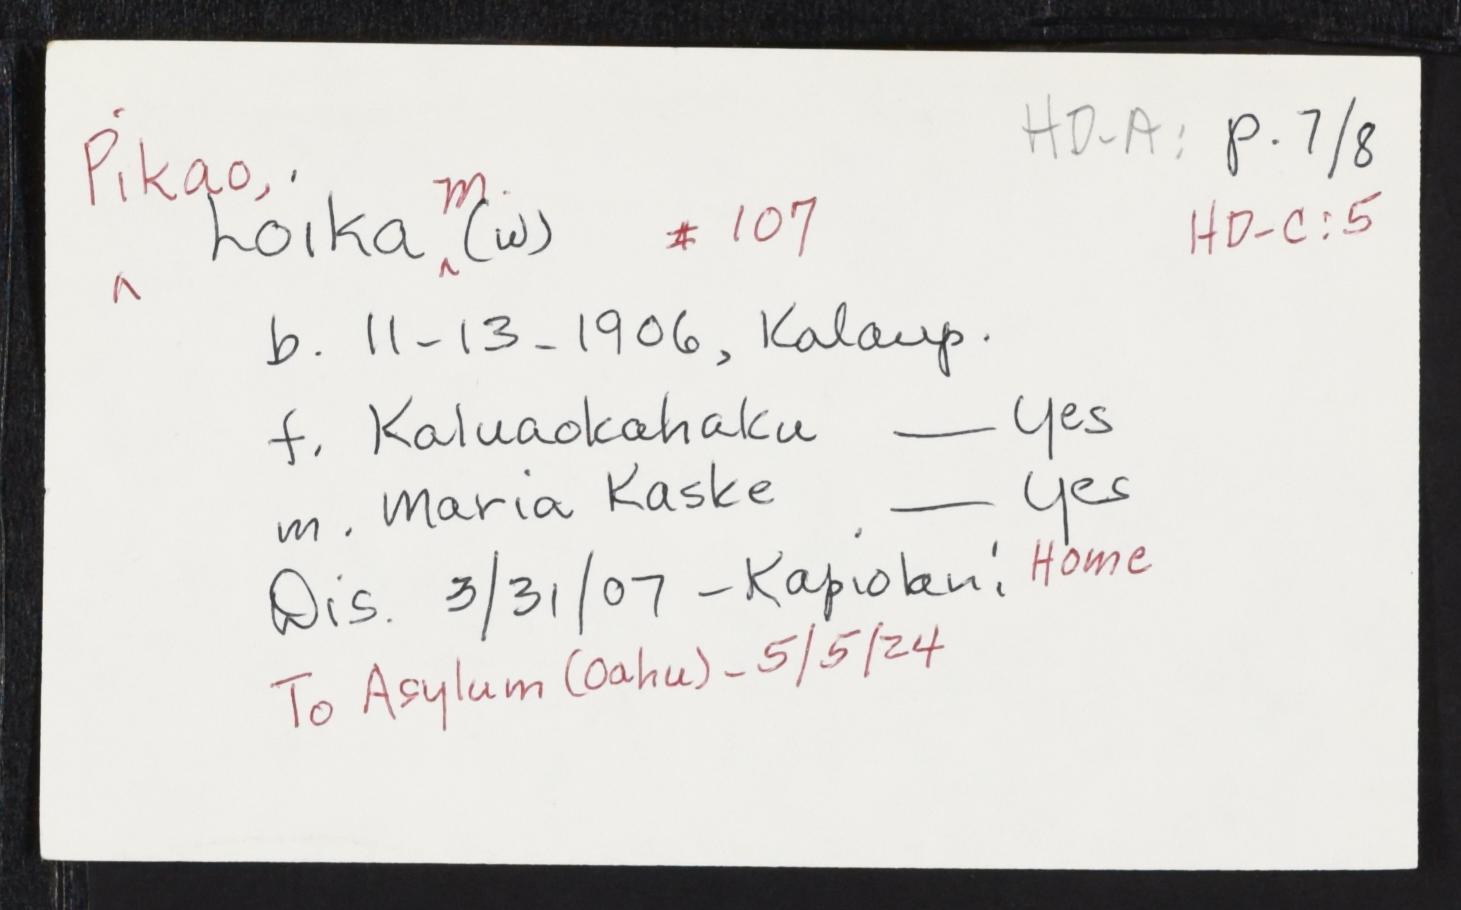 HD-A: p. 7/8
Pikao, Loika m. (w) # 107 HD-C: 5
b. 11-13-1906, Kalaup.
f. Kaluaokahaku — Yes
m. Maria Kaske — Yes
Dis. 3/31/07 - Kapiolani Home
To Asylum (Oahu) - 5/5/24